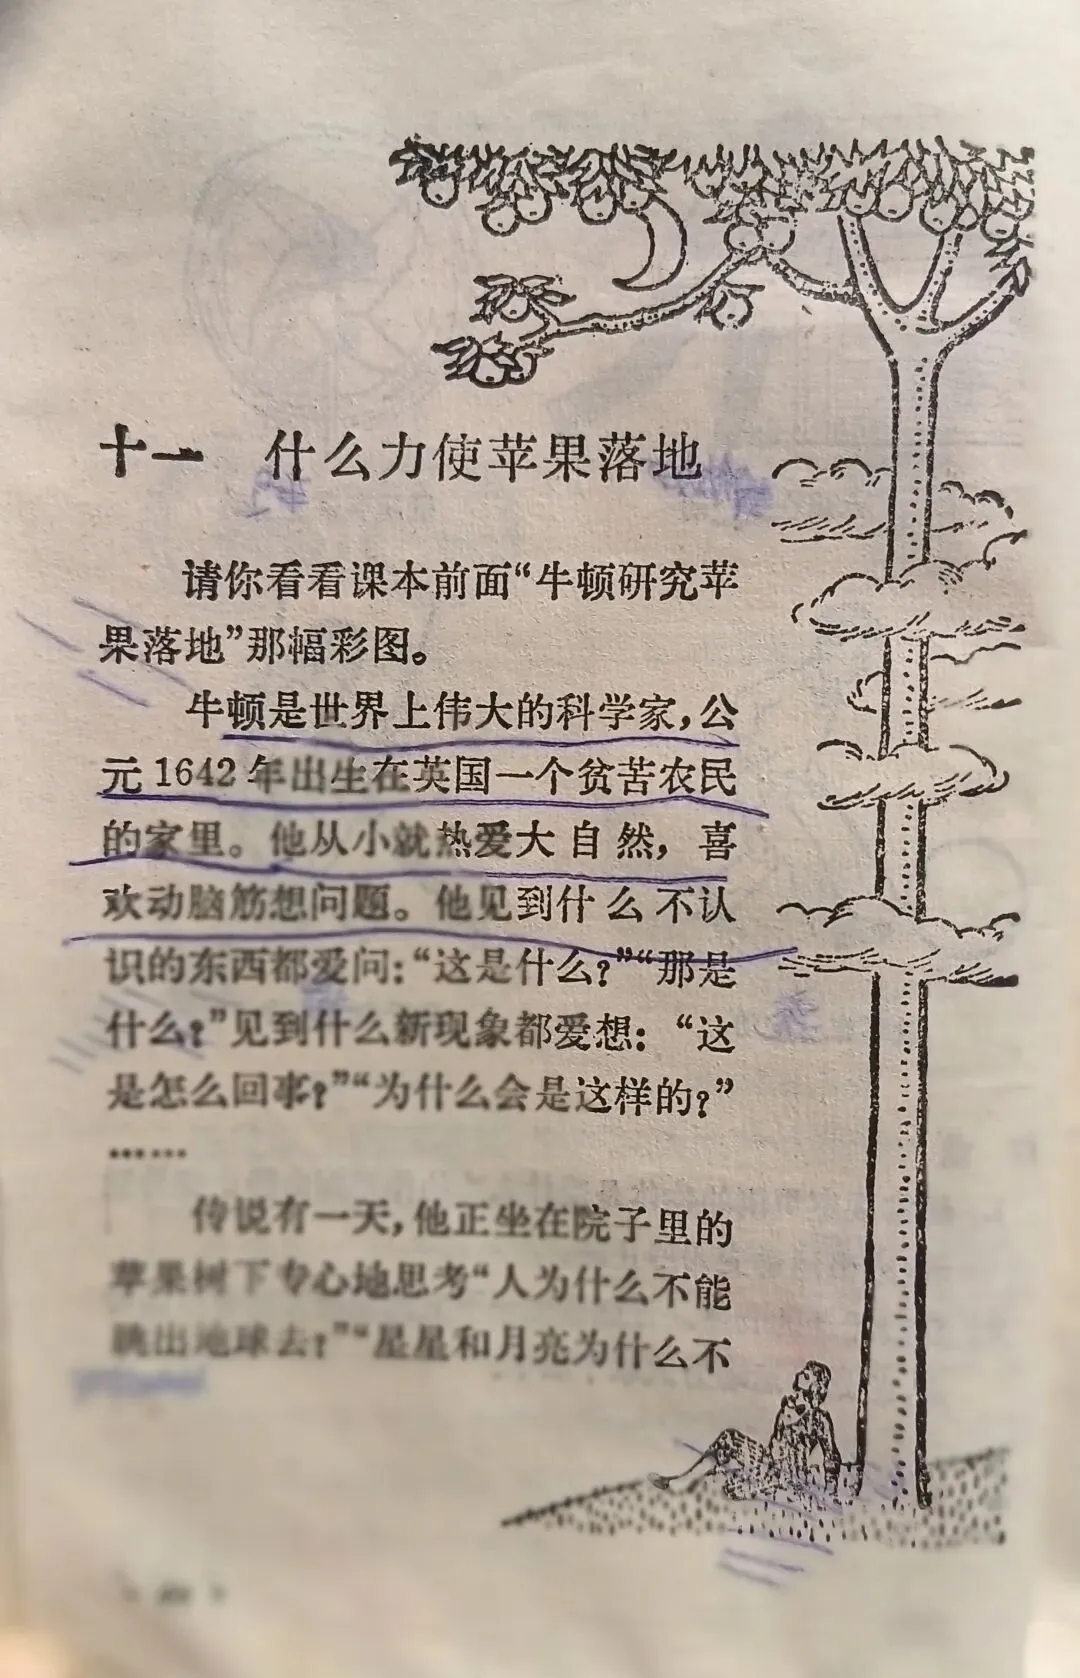 十一 什么力使苹果落地
请你看看课本前面“牛顿研究苹
果落地”那幅彩图。
牛顿是世界上伟大的科学家，公
元1642年出生在英国一个贫苦农民
的家里。他从小就热爱大自然，喜
欢动脑筋想问题。他见到什么不认
识的东西都爱问：“这是什么？”“那是
什么？”见到什么新现象都爱想：“这
是怎么回事？”“为什么会是这样的？”
……
传说有一天，他正坐在院子里的
苹果树下专心地思考“人为什么不能
跳出地球去？”“星星和月亮为什么不